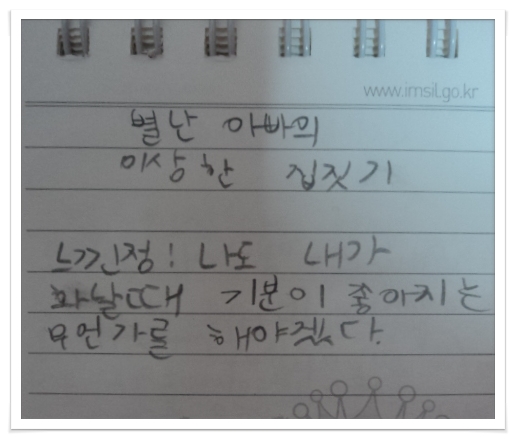 www.imsil.go.kr
별난 아빠의
이상한 집짓기
느낀점! 나도 내가
화날때 기분이 좋아지는
무언가를 해야겠다.